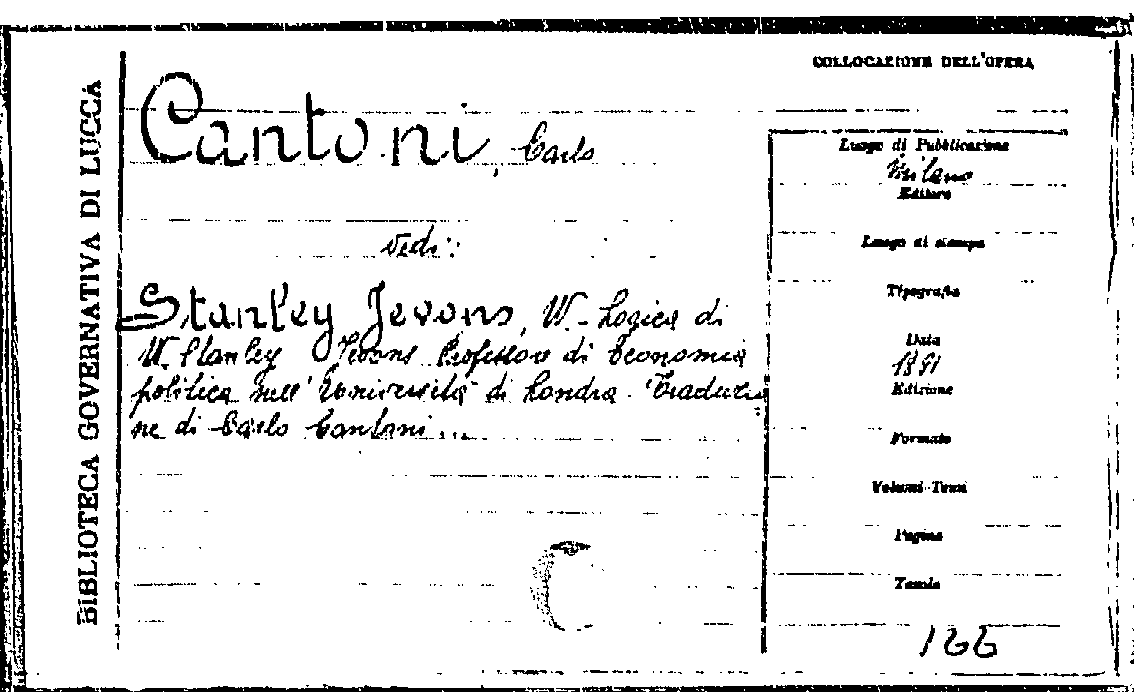 BIBLIOTECA GOVERNATIVA DI LUCCA
COLLOCAZIONE DELL'OPERA
Cantoni, Carlo
vedi:
Stanley Jevons, W. - Logica di
W. Stanley Jevons Professore di Economia
politica nell'Università di Londra. Traduzio
ne di Carlo Cantoni...
Luogo di Pubblicazione
Milano
Editore
Luogo di stampa
Tipografia
Data
1881
Edizione
Formato
Volumi-Tomi
Pagine
Tavole
166